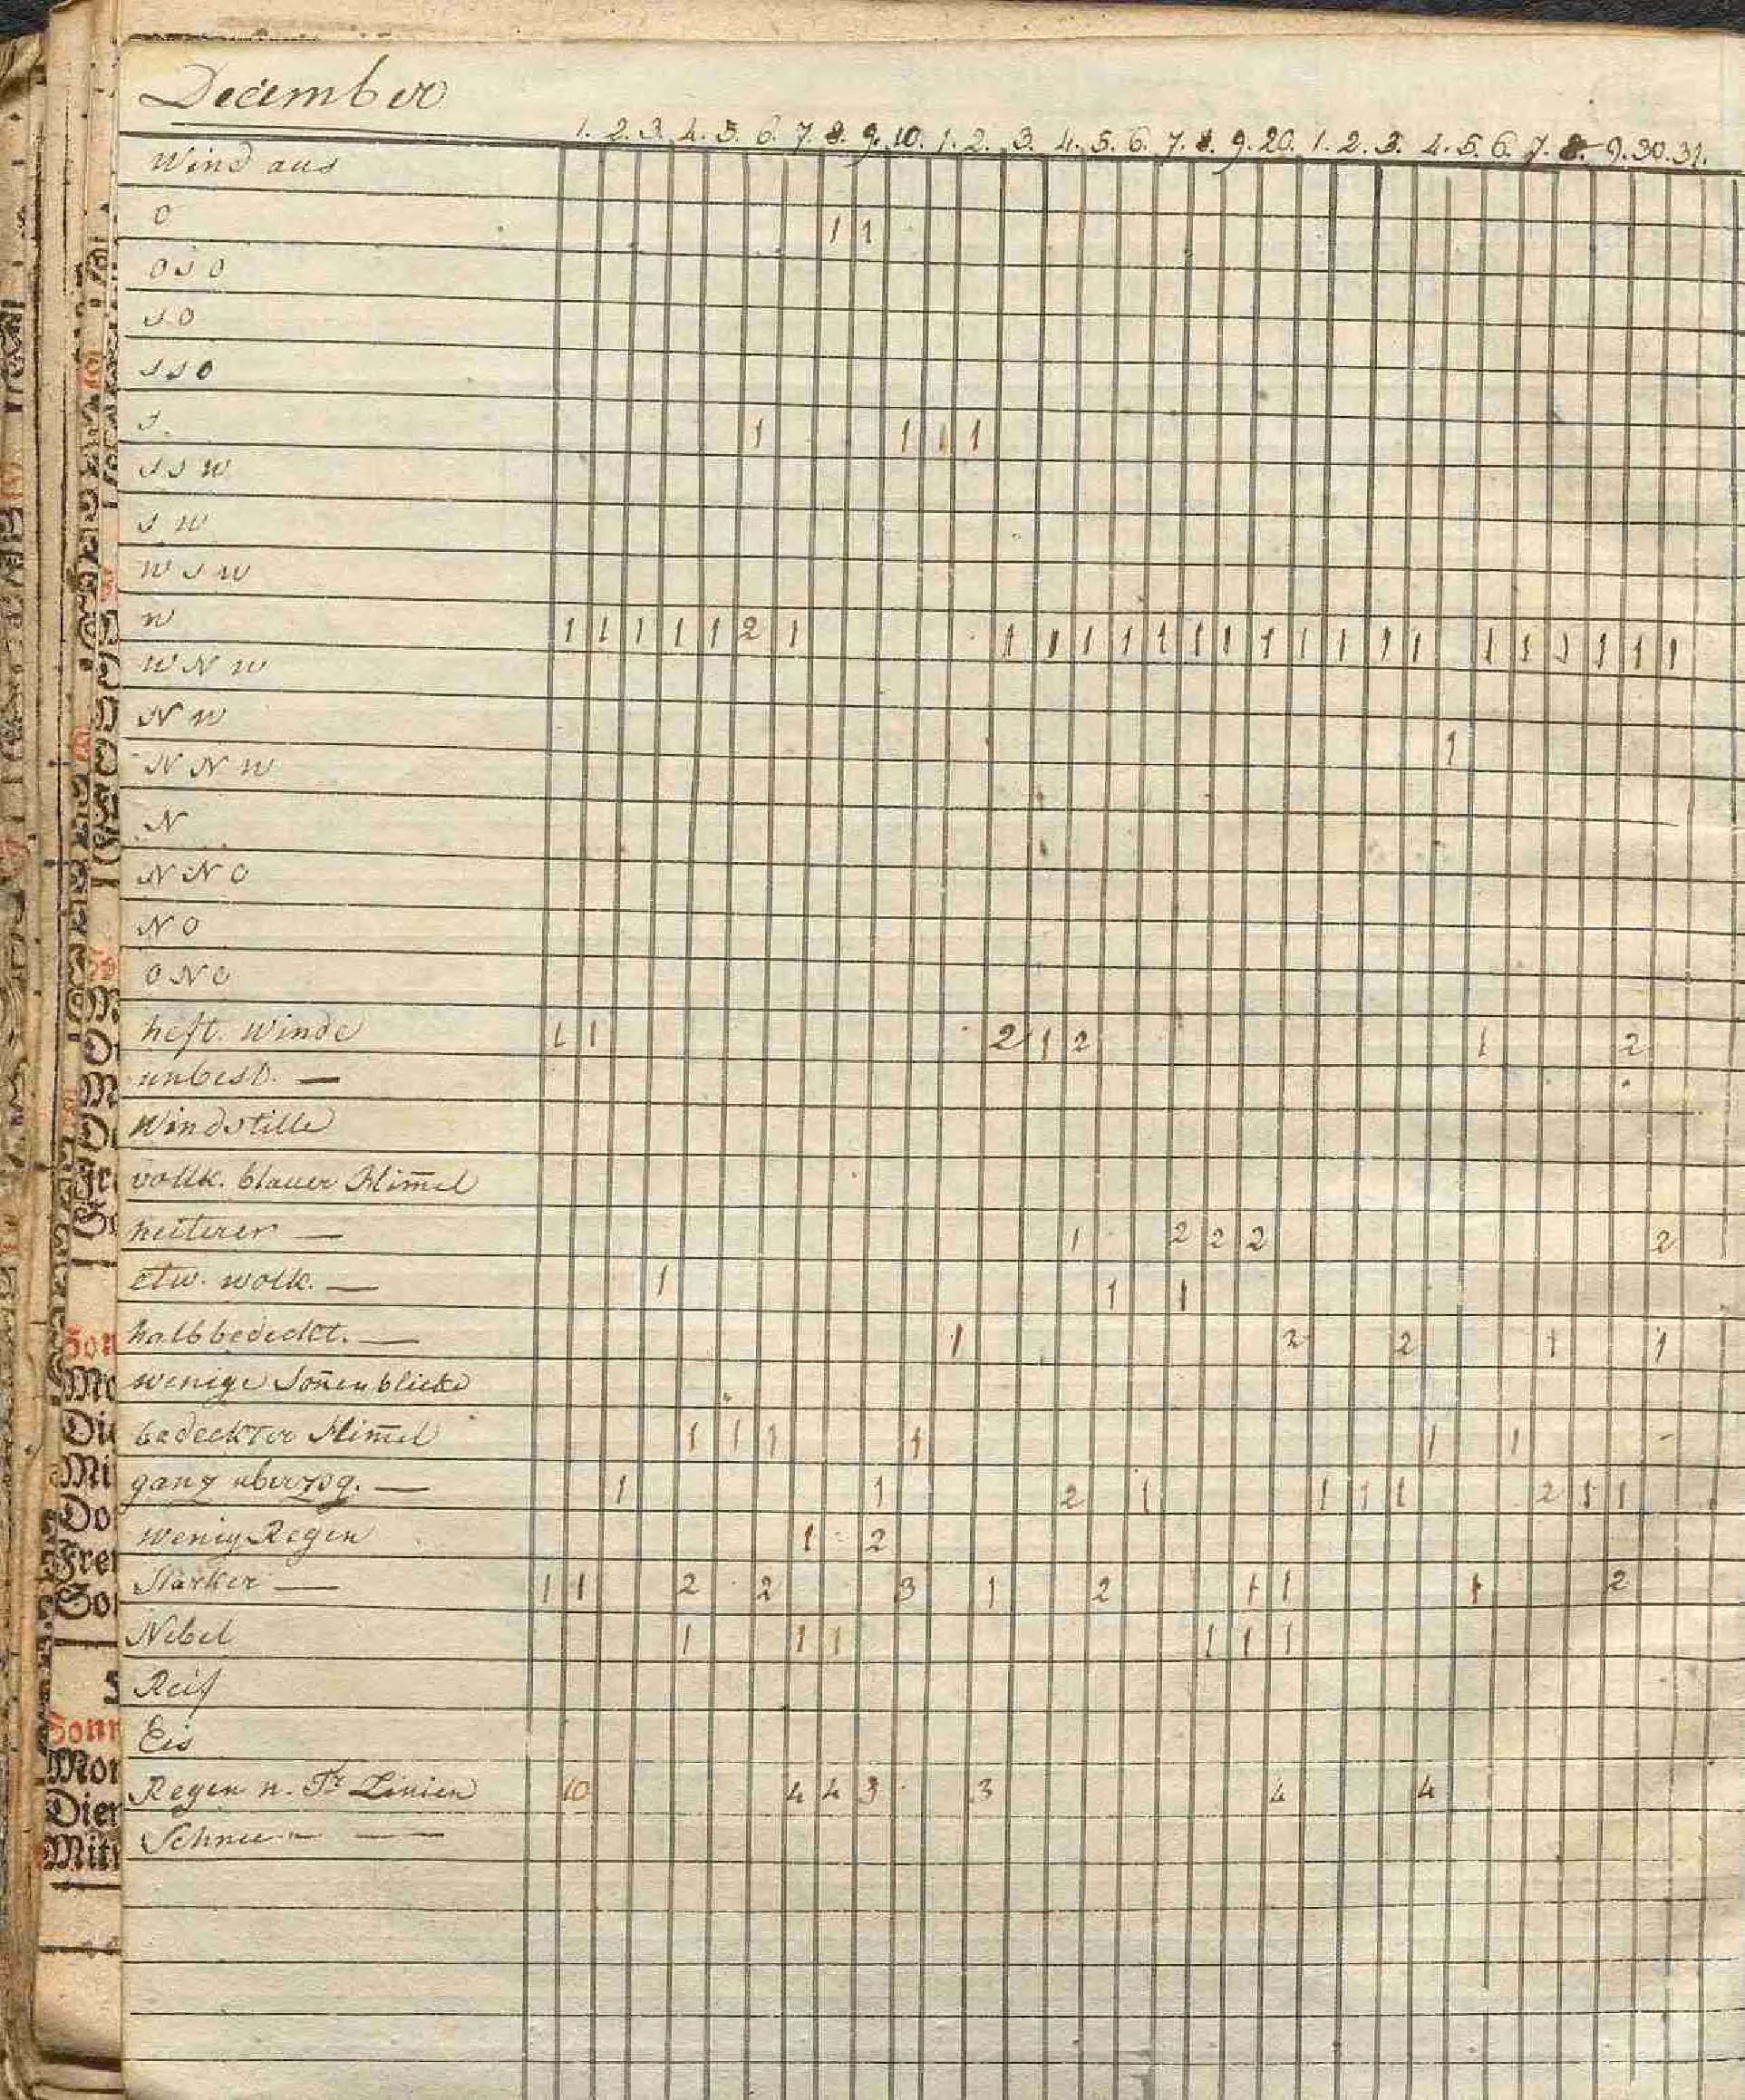 December
1. 2. 3. 4. 5. 6. 7. 8. 9. 10. 1. 2. 3. 4. 5. 6. 7. 8. 9. 20. 1. 2. 3. 4. 5. 6. 7. 8. 9. 30. 31.
Wind aus
O 1 1
O S O
S O
S S O
S. 1 1 1 1
S S W
S W
W S W
W 1 1 1 1 1 2 1 1 1 1 1 1 1 1 1 1 1 1 1 1 1 1 1 1 1
W N W
N W
N N W 1
N
N N O
N O
O N O
heft. Winde 1 1 2 1 2 1 2
unbest. —
Windstille
vollk. blauer Him̄el
heiterer — 1 2 2 2 2
etw. wolk. — 1 1 1
halb bedeckt. — 1 2 2 1 1
wenige Son̄enblicke
bedeckter Him̄el 1 1 1 1 1 1 -
ganz uberzog. — 1 1 2 1 1 1 1 2 1 1
wenig Regen 1 2
Starker — 1 1 2 2 3 1 2 1 1 1 2
Nebel 1 1 1 1 1 1
Reif
Eis
Regen n. Pr Linien 10 4 4 3 3 4 4
Schnee - —
Son
Mo
Die
Mi
Do
Frei
Son
Sonn
Mon
Dien
Mitt